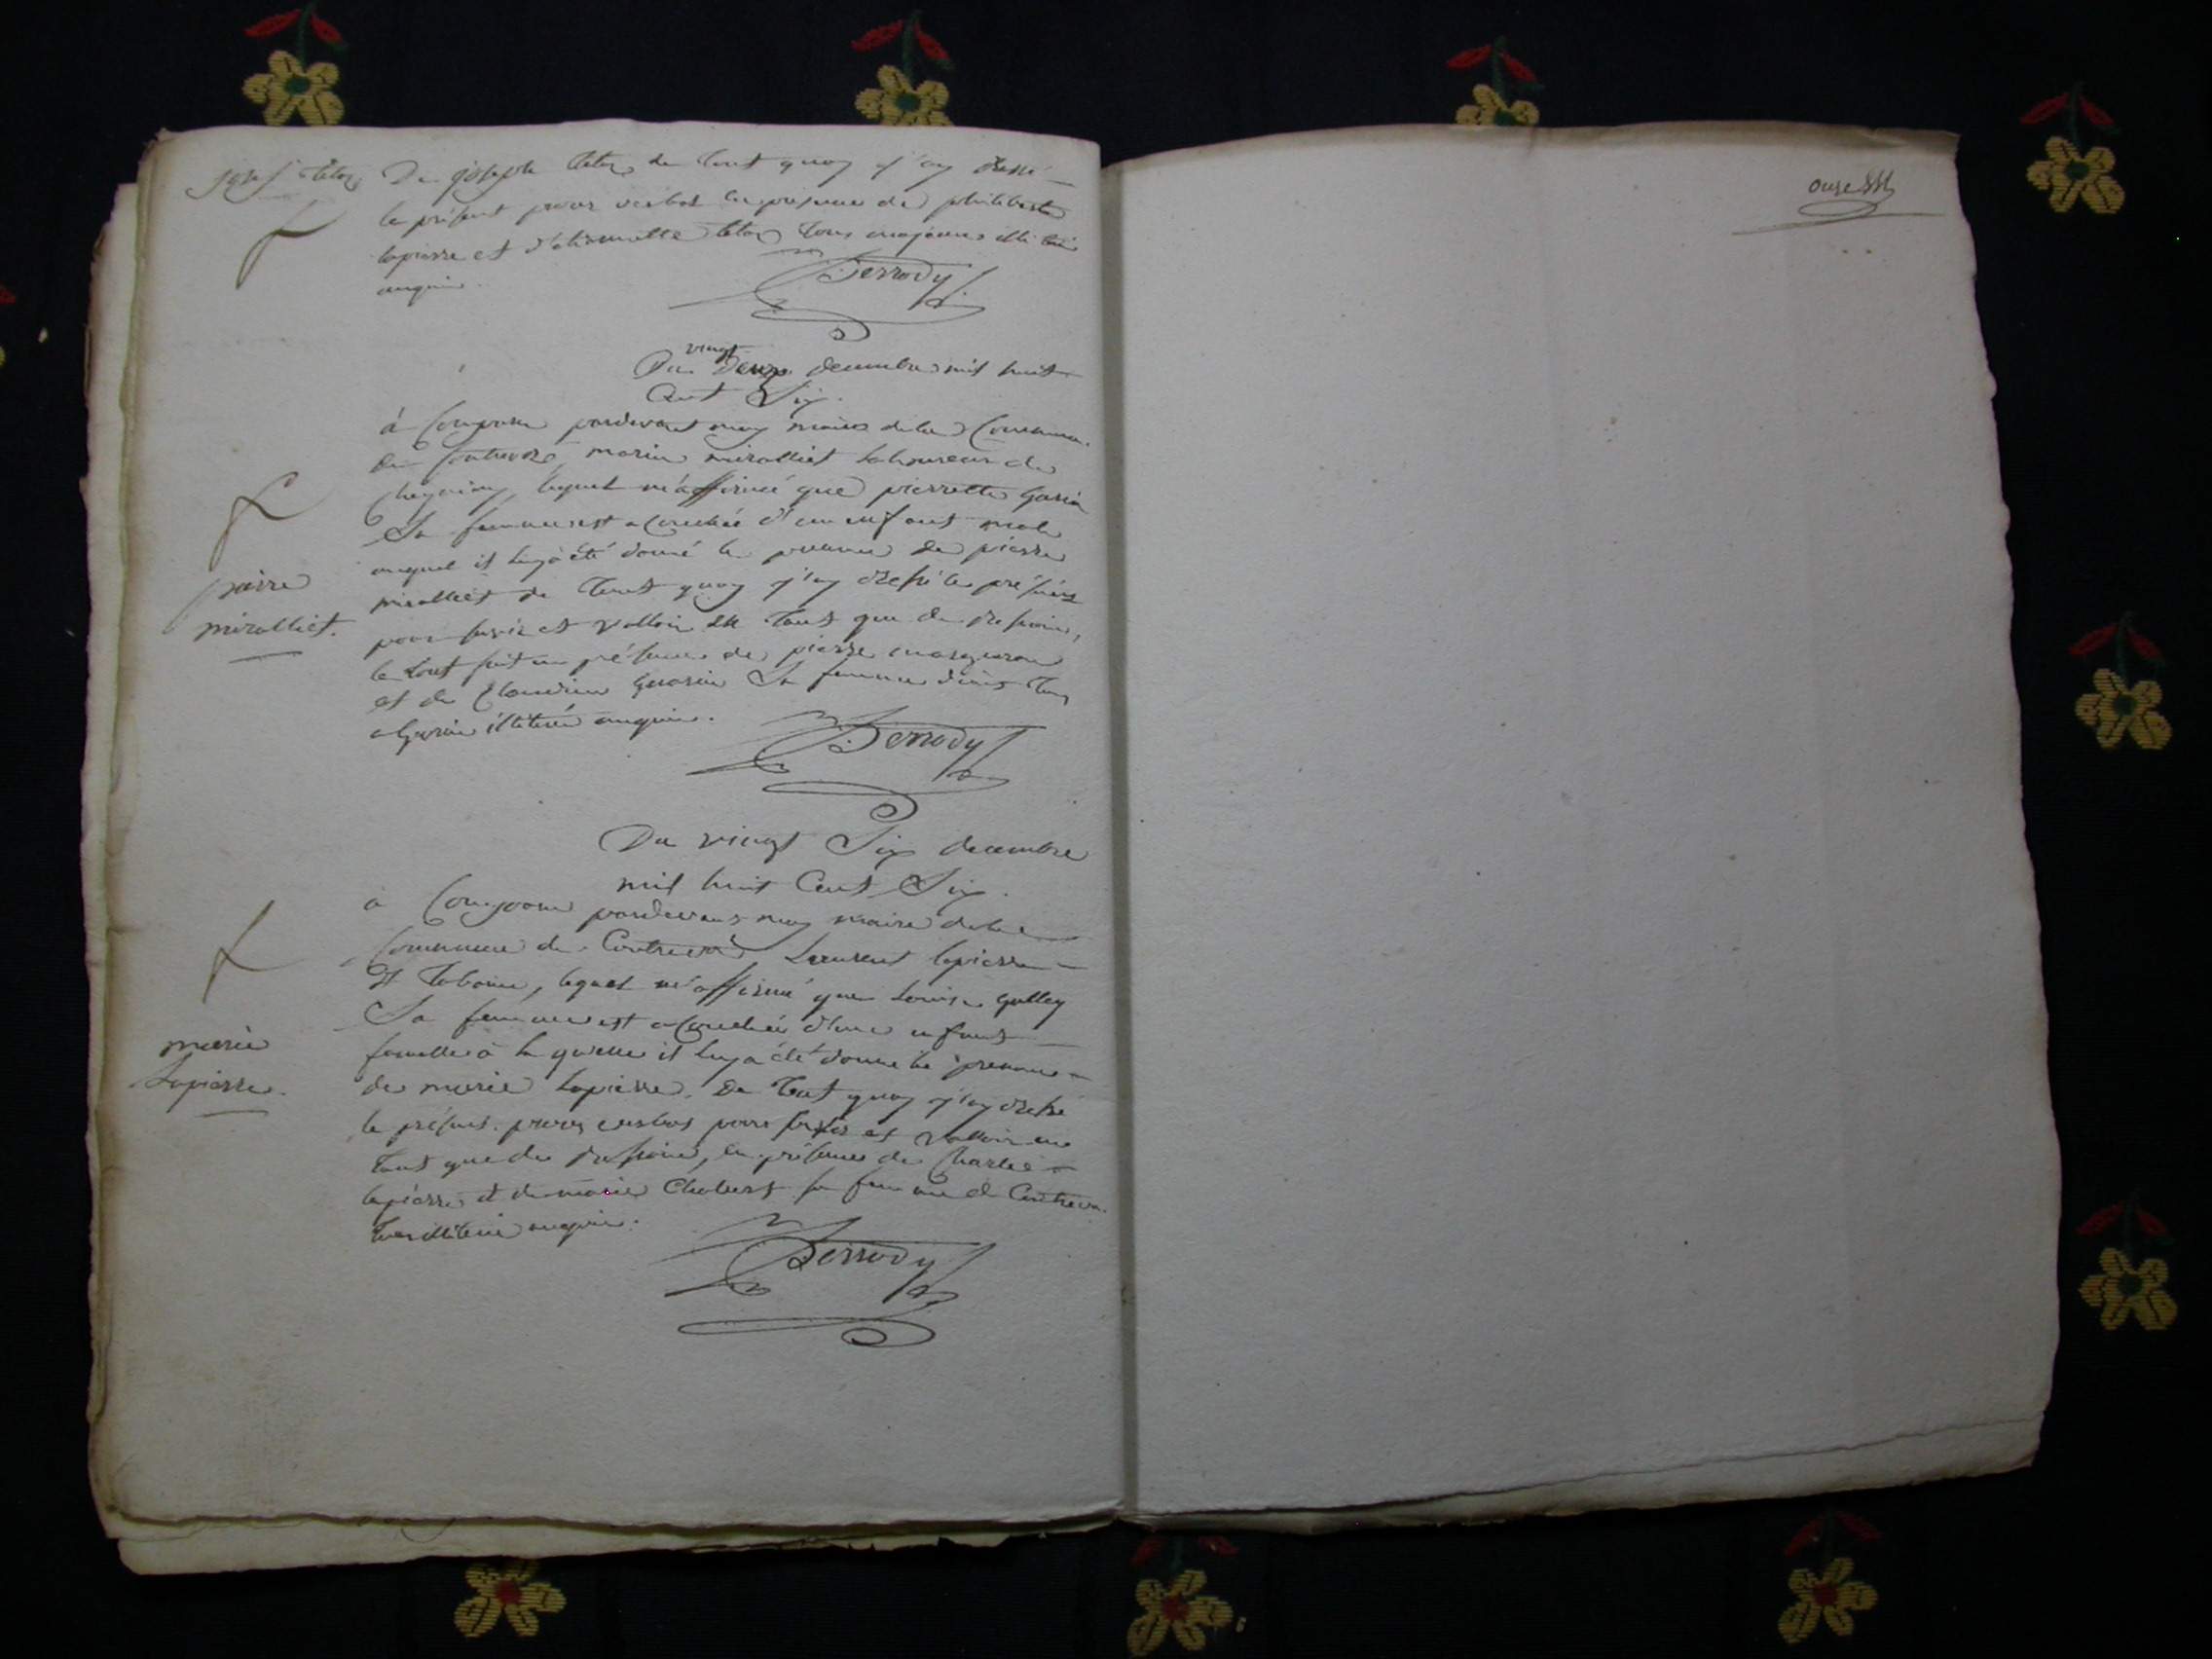 Josef
De joseph de tout quoy j'ay dressé
le présent procès verbal en présence de philiberte
lapierre et tous
auquis.
Berrody
vingt
Du Deux decembre mil huit
Cent Six.
à Comparu pardevant moy maire de la Commune
de marin miralliet laboureur de
lequel m'a affirmé que pierrette Garin
Sa femme est acouchée d'un enfant male
auquel il luy à été donné le prenom de pierre
miralliet de tout quoy j'ay dressé le présent
pour servir et valloir en tant que de raison,
le tout fait en présence de pierre
et de Claudine Guarin Sa femme
Garin illiteré enquis.
pierre
miralliet.
Berrody
Du vingt Six decembre
mil huit Cent Six.
à Comparu pardevant moy maire de la
Commune de Contrevoz Laurent lapierre
lequel m'a affirmé que Louise Gulley
Sa femme est acouchée d'une enfant
femelle à la quelle il luy a été donné le prenom
de marie lapierre. De tout quoy j'ay dressé
le présent procès verbal pour servir et valloir en
tant que de raison, en présence de Charle
lapierre et de marie Chabert sa femme de Contrevoz
tous illiteré enquis.
marie
Lapierre.
Berrody
onze